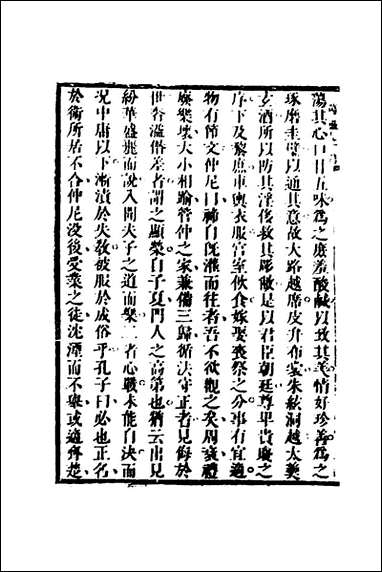 蕩其心口甘五味為之庶羞酸鹹以致其美情好珍善為之
琢磨圭璧以通其意故大路越席皮弁布裳朱絃洞越大羹
玄酒所以防其淫侈救其彫敝是以君臣朝廷尊卑貴賤之
序下及黎庶車輿衣服宮室飲食嫁娶喪祭之分事有宜適
物有節文仲尼曰禘自既灌而往者吾不欲觀之矣周衰禮
廢樂壞大小相踰管仲之家兼備三歸循法守正者見侮於
世奢溢僭差者謂之顯榮自子夏門人之高弟也猶云出見
紛華盛麗而說入聞夫子之道而樂二者心戰未能自決而
況中庸以下漸漬於失教被服於成俗乎孔子曰必也正名
於衛所居不合仲尼沒後受業之徒沈湮而不舉或適齊楚